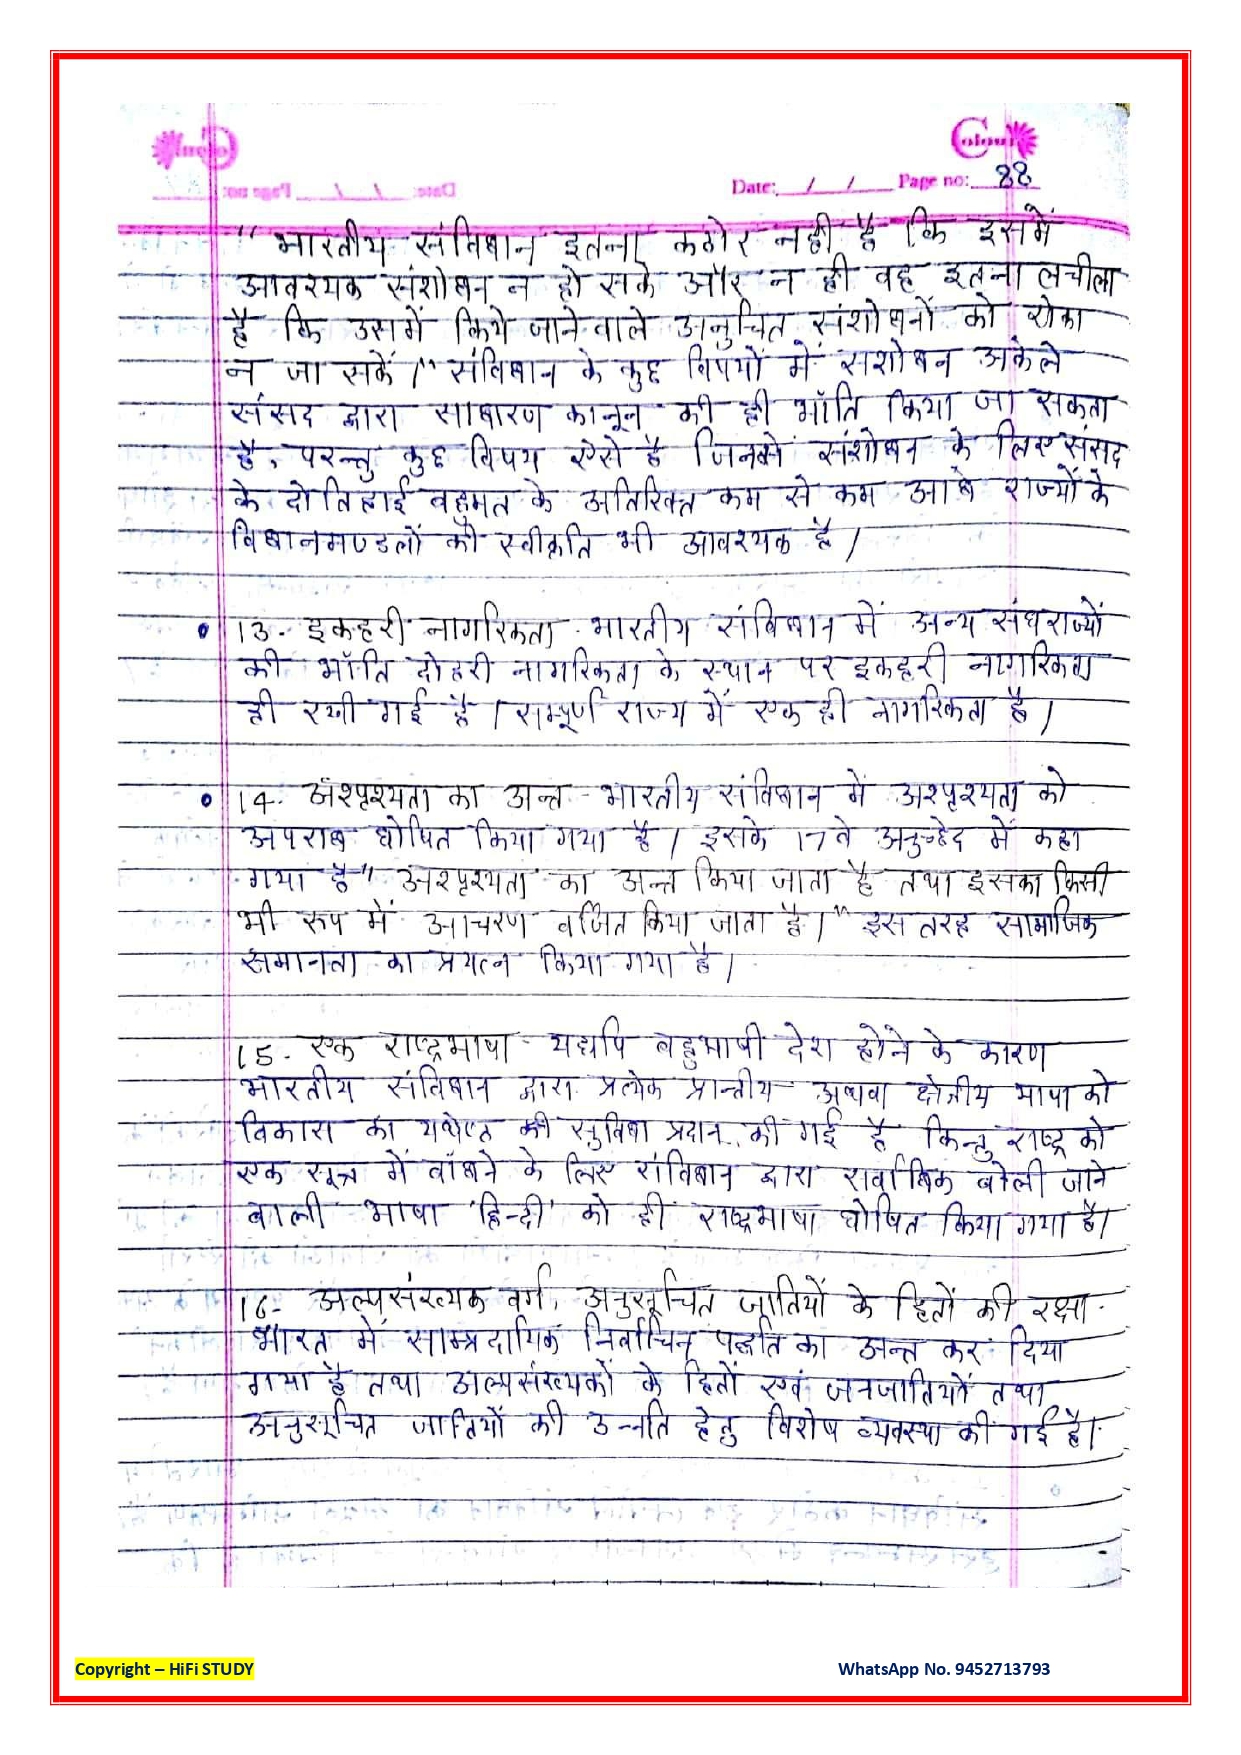 Colour
Date: / / Page no: 88
" भारतीय संविधान इतना कठोर नही है कि इसमें
आवश्यक संशोधन न हो सके और न ही वह इतना लचीला
है कि उसमें किये जाने वाले अनुचित संशोधनों को रोका
न जा सकें।" संविधान के कुछ विषयों में संशोधन अकेले
संसद द्वारा साधारण कानून की ही भाँति किया जा सकता
है, परन्तु कुछ विषय ऐसे है जिनके संशोधन के लिए संसद
के दो तिहाई बहुमत के अतिरिक्त कम से कम आधे राज्यों के
विधानमण्डलों की स्वीकृति भी आवश्यक है।
• 13- इकहरी नागरिकता- भारतीय संविधान में अन्य संघराज्यों
की भाँति दोहरी नागरिकता के स्थान पर इकहरी नागरिकता
ही रखी गई है। सम्पूर्ण राज्य में एक ही नागरिकता है।
• 14- अश्पृश्यता का अन्त- भारतीय संविधान में अश्पृश्यता को
अपराध घोषित किया गया है। इसके 17वे अनुच्छेद में कहा
गया है" अश्पृश्यता का अन्त किया जाता है तथा इसका किसी
भी रूप में आचरण वर्जित किया जाता है।" इस तरह सामाजिक
समानता का प्रयत्न किया गया है।
15- एक राष्ट्रभाषा- यद्यपि बहुभाषी देश होने के कारण
भारतीय संविधान द्वारा प्रत्येक प्रान्तीय अथवा क्षेत्रीय भाषा को
विकास का यथेष्ठ की सुविधा प्रदान की गई है किन्तु राष्ट्र को
एक सूत्र में बाँधने के लिए संविधान द्वारा सर्वाधिक बोली जाने
वाली भाषा 'हिन्दी' को ही राष्ट्रभाषा घोषित किया गया है।
16- अल्पसंख्यक वर्ग, अनुसूचित जातियों के हितों की रक्षा-
भारत में साम्प्रदायिक निर्वाचन पद्धति का अन्त कर दिया
गया है तथा अल्पसंख्यकों के हितों एवं जनजातियों तथा
अनुसूचित जातियों की उन्नति हेतु विशेष व्यवस्था की गई है।
Copyright – HiFi STUDY WhatsApp No. 9452713793